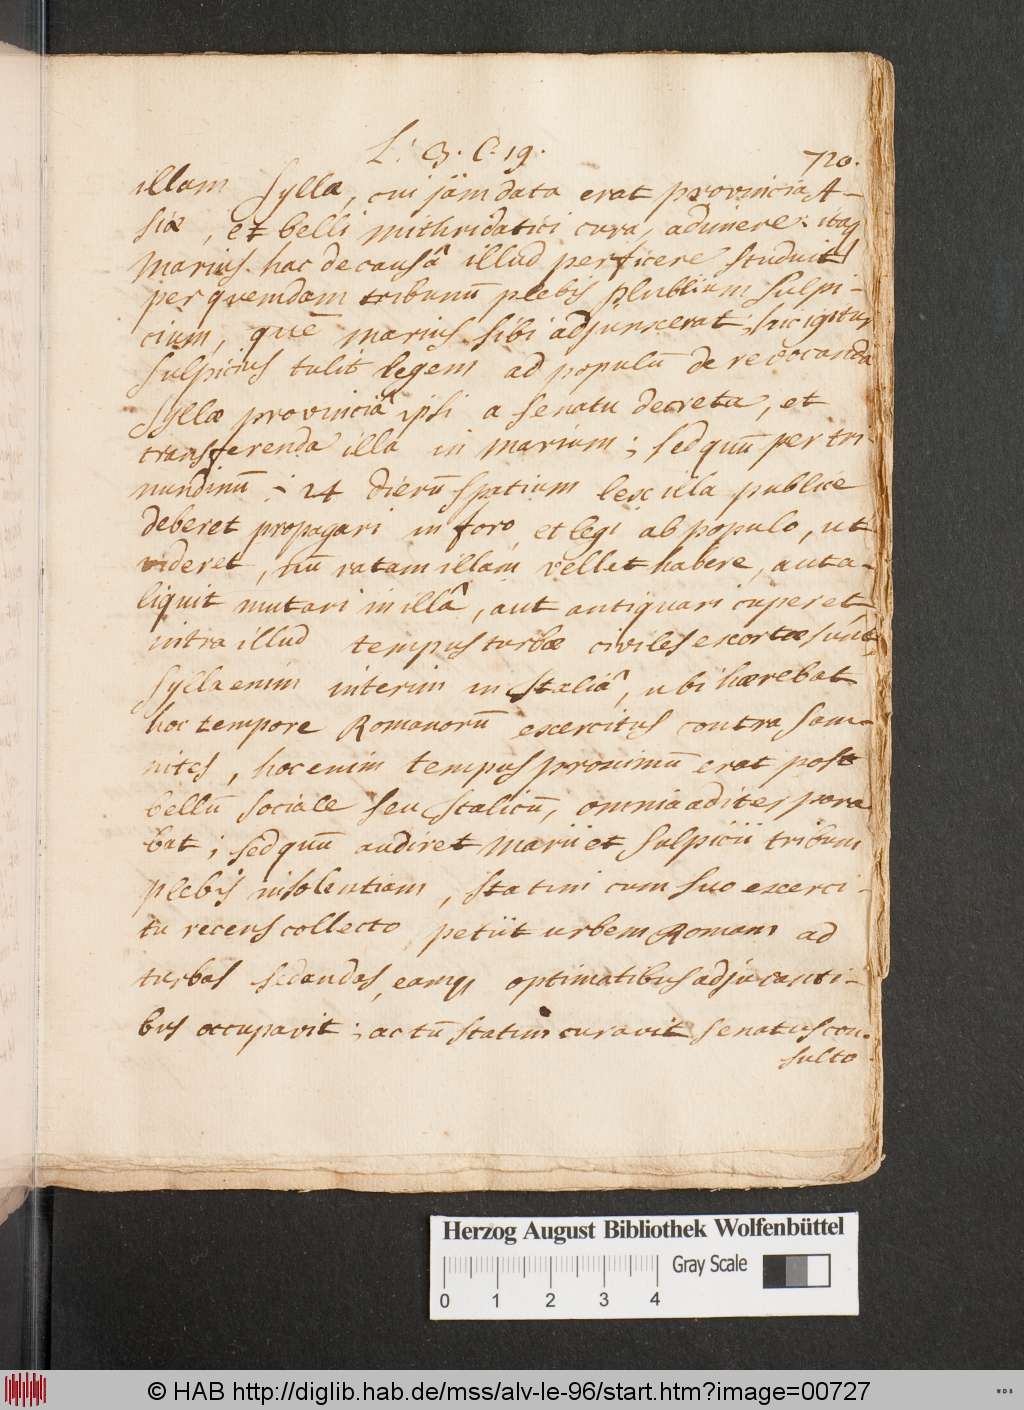 L. 3. C. 19.
720.
illam Sylla, cui jam data erat provincia A-
siæ, et belli mithridatici cura, adimere: itaq
Marius hac de causâ illud perficere studuit
per quemdam tribunū plebis Plublium Sulpi-
cium, quē marius sibi adjunxerat; sic igitur
Sulpicius tulit legem ad populū de revocanda
Syllæ provinciâ ipsi a senatu decreta, et
transferenda illa in marium; sed quū per tri-
nundinū i 24 dierū spatium lex illa publice
deberet propagari in foro, et legi ab populo, ut
videret, nū ratam illam vellet habere, aut a-
liquit mutari in illâ, aut antiquari cuperet
intra illud tempus turbæ civiles exortæ sunt,
Sylla enim interim in Italiâ, ubi hærebat
hoc tempore Romanorū exercitus contra sam-
nites, hoc enim tempus proximū erat post
bellū sociale seu Italicū, omnia ad iter para
bat; sed quū audiret Marii et Sulpicii tribuni
plebis insolentiam, statim cum suo exerci-
tu recens collecto petiit urbem Romam ad
turbas sedandas, eamq optimatibus adjuvanti-
bus occupavit; ac tū statim curavit senatus con-
sulto
Herzog August Bibliothek Wolfenbüttel
Gray Scale
0 1 2 3 4
© HAB http://diglib.hab.de/mss/alv-le-96/start.htm?image=00727